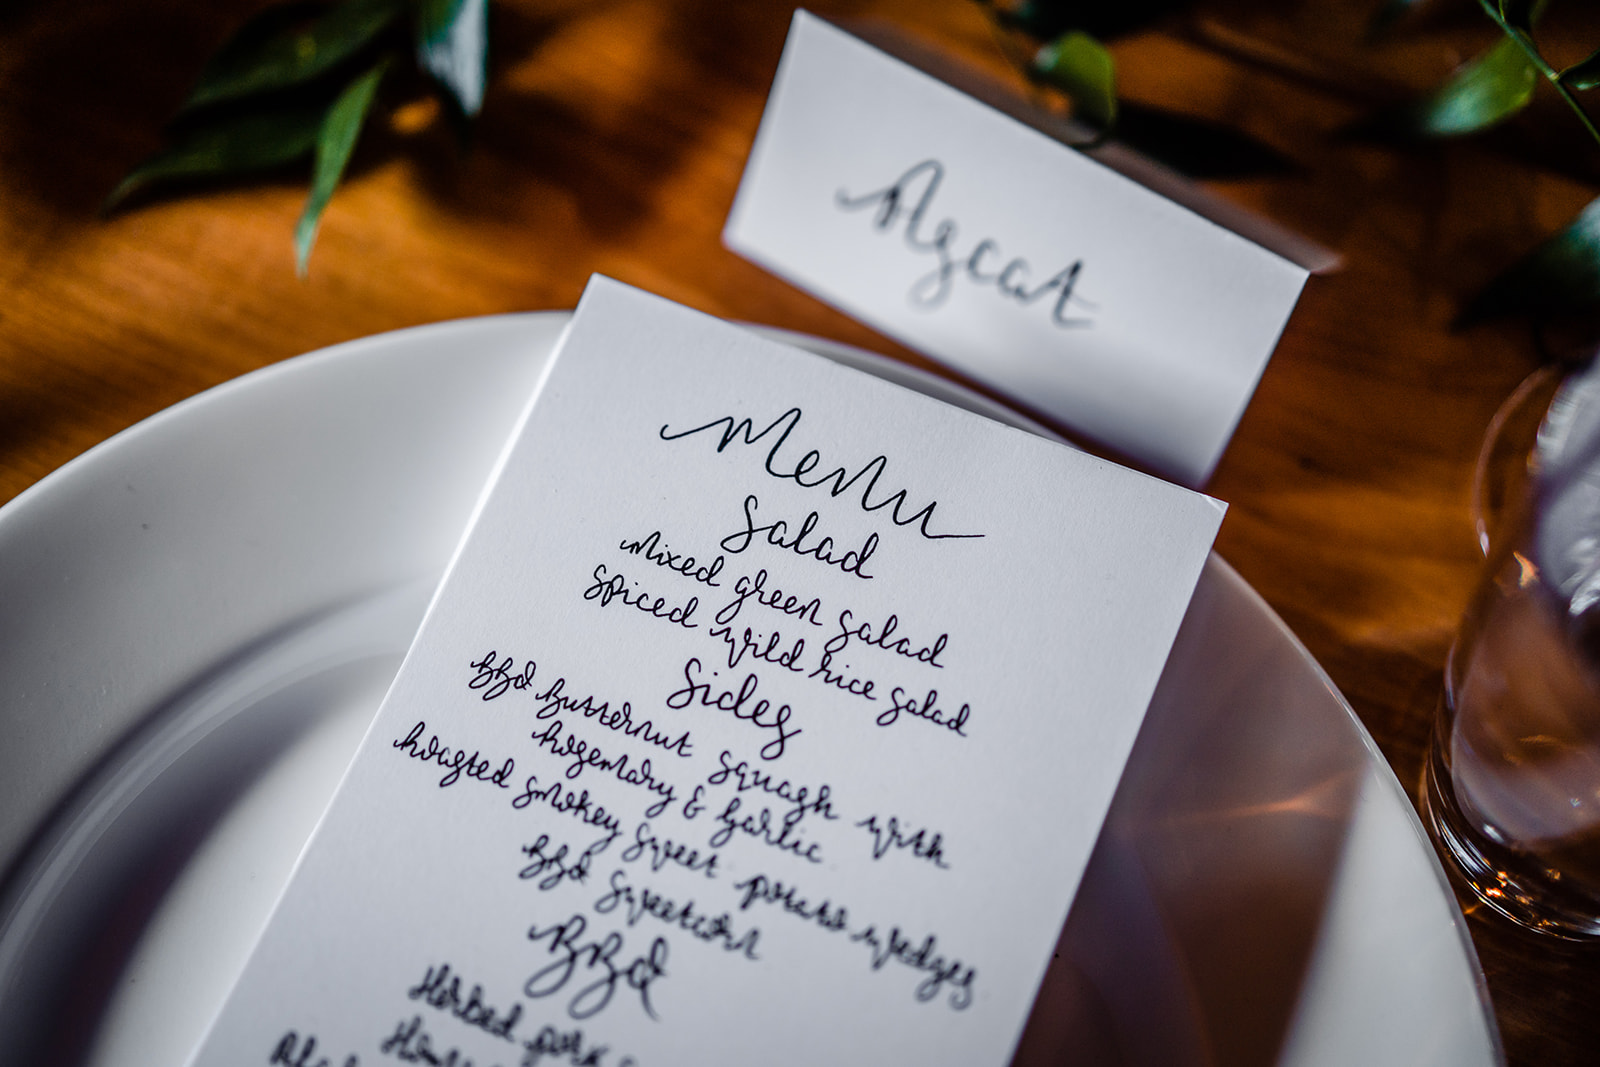 Azcat
Menu
Salad
Mixed green salad
Spiced wild rice salad
Sides
BBQ Butternut squash with
rosemary & garlic
Roasted smokey sweet potato wedges
BBQ Sweetcorn
BBQ
Herbed pork